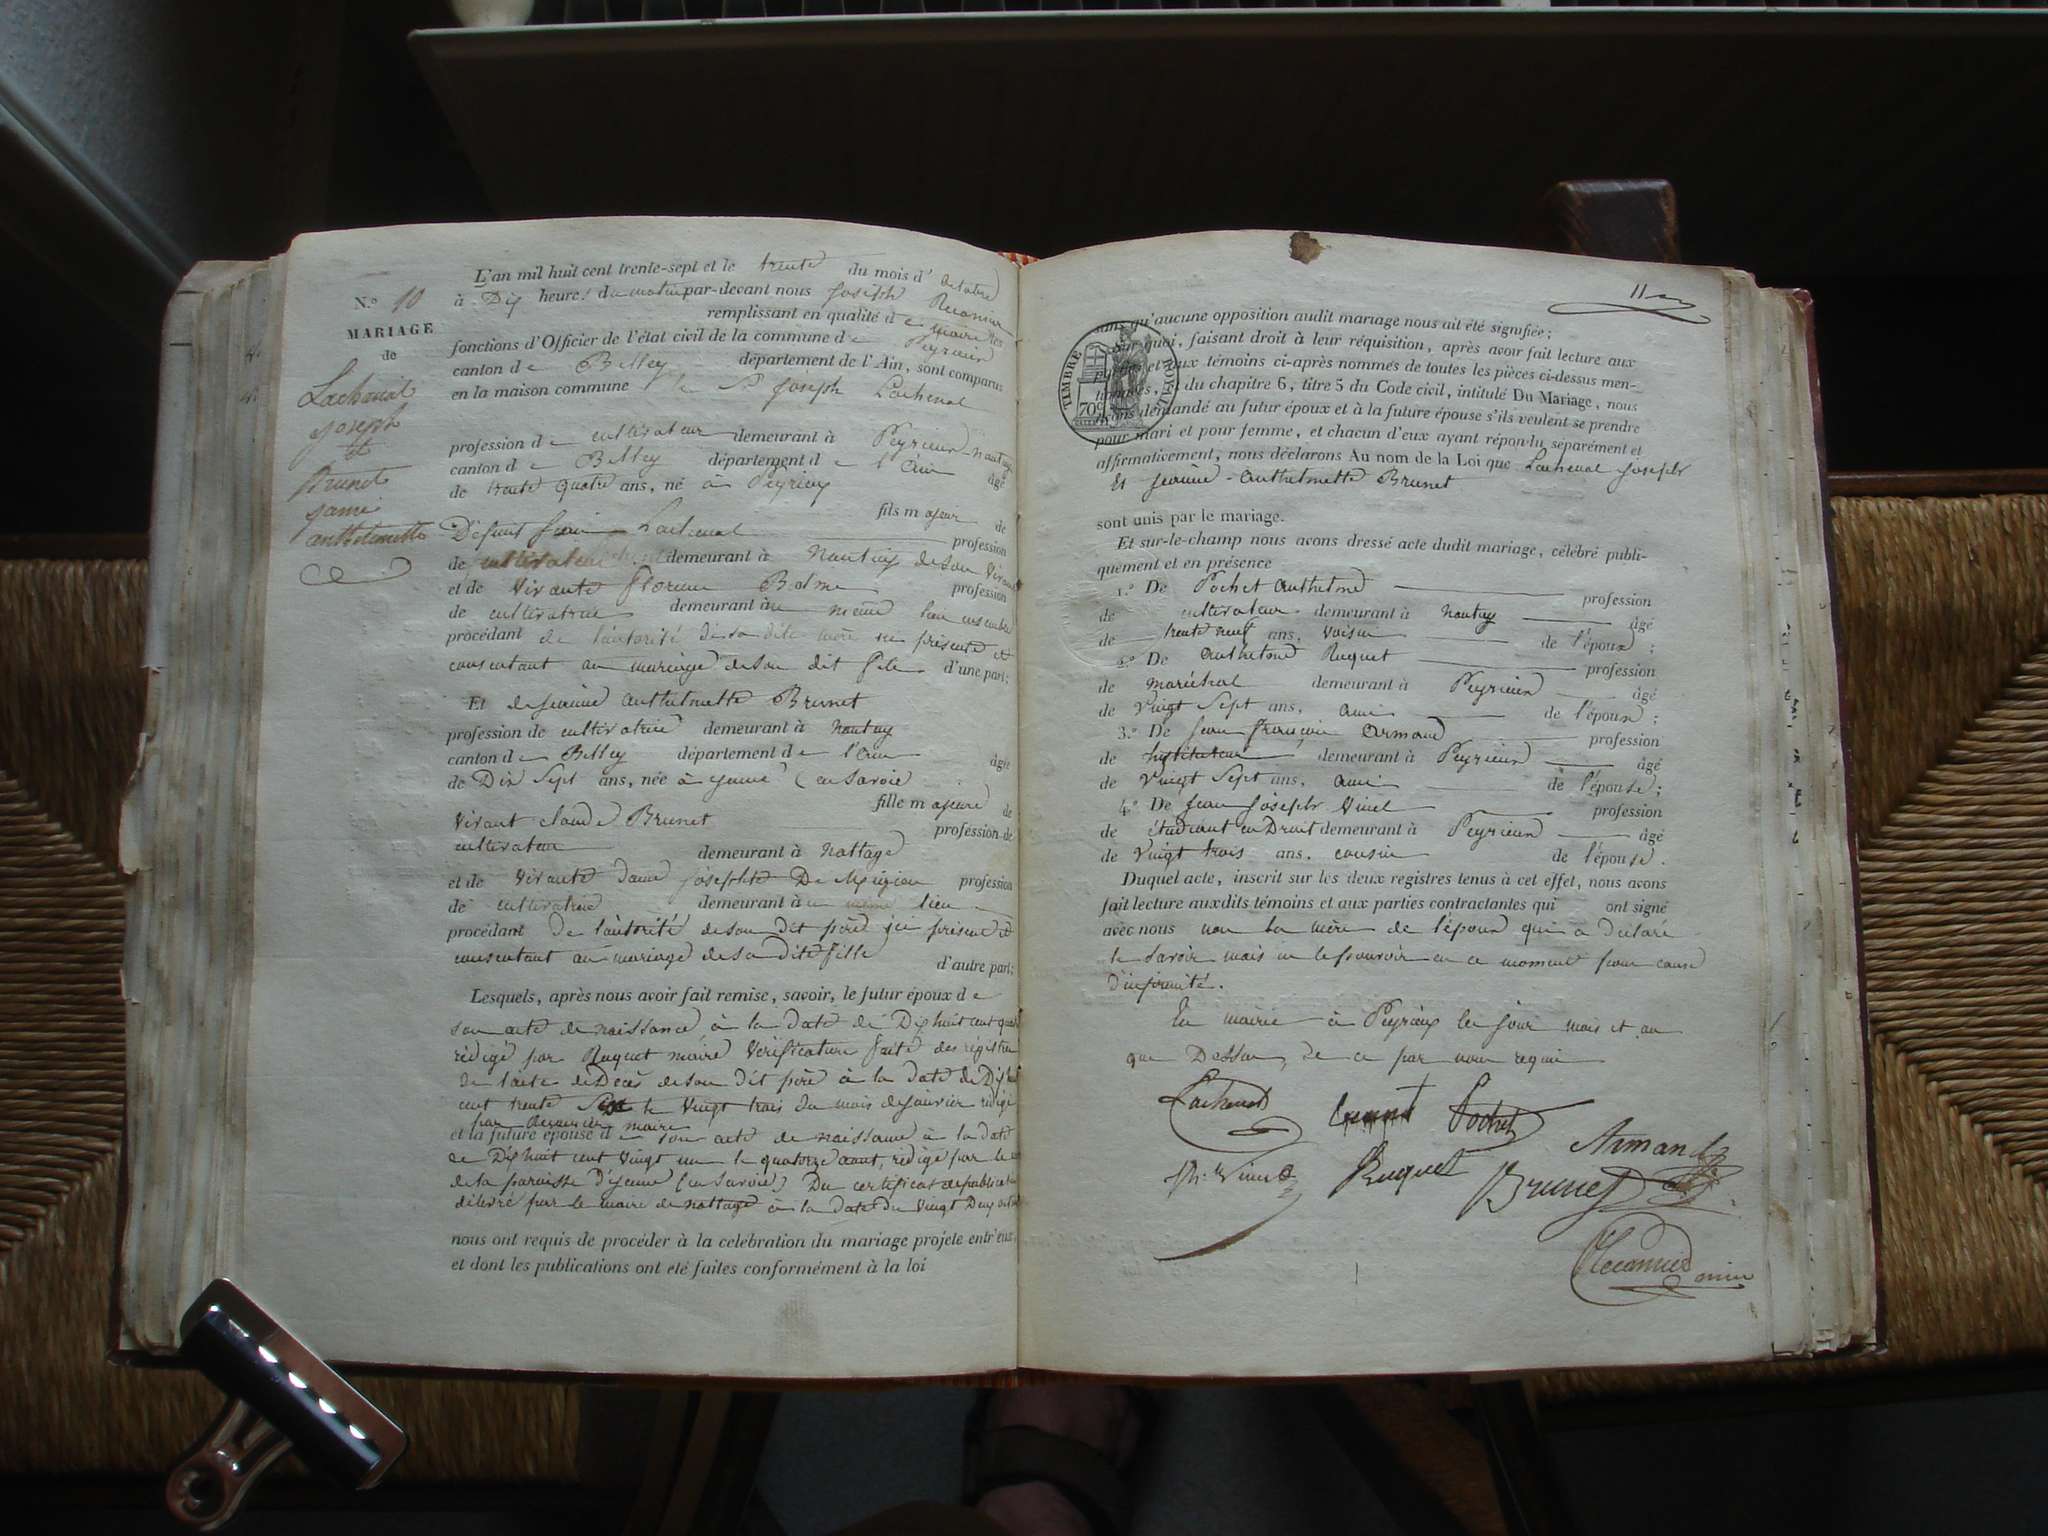 N.º 10
MARIAGE
de
Lachenal
joseph
et
Brunet
janne
anthelmette
L'an mil huit cent trente-sept et le trente du mois d'octobre
à Dix heures du matin par-devant nous Joseph Récamier
remplissant en qualité de maire les
fonctions d'Officier de l'état civil de la commune de Peyrieu
canton de Belley département de l'Ain, sont comparus
en la maison commune le Sr joseph Lachenal
profession de cultivateur demeurant à Peyrieu nantuy
canton de Belley département de l'Ain âgé
de trente quatre ans, né à Peyrieux
fils majeur de
Défunt Lachenal profession
de cultivateur demeurant à Nantuy de son vivant
et de vivante florine Bolme profession
de cultivatrice demeurant au même lieu
procédant de l'autorité de sa dite mère ici présente et
consentant au mariage de son dit fils d'une part;
Et de jeanne anthelmette Brunet
profession de cultivatrice demeurant à nantuy
canton de Belley département de l'Ain âgée
de Dix Sept ans, née à yenne (en Savoie
fille majeure de
vivant claude Brunet profession de
cultivateur demeurant à nattage
et de vivante dame josephte profession
de cultivatrice demeurant au même lieu
procédant de l'autorité de son dit père ici présent et
consentant au mariage de sa dite fille d'autre part;
Lesquels, après nous avoir fait remise, savoir, le futur époux de
son acte de naissance à la date de Dix huit cent quatre
rédigé par Ruquet maire vérification faite des régistres
de l'acte de Décès de son dit père à la date de Dix huit
cent trente Sept le vingt trois du mois de janvier rédigé
par Récamier maire
et la future épouse de son acte de naissance à la date
de Dix huit cent vingt un le quatorze aout, rédigé par le
de la paroisse d'yenne (en Savoie) Du certificat de publication
délivré par le maire de nattage à la date du vingt Deux octobre
nous ont requis de procéder à la celebration du mariage projeté entr'eux
et dont les publications ont été faites conformément à la loi
11
TIMBRE ROYAL
70c
sans qu'aucune opposition audit mariage nous ait été signifiée;
Sur quoi, faisant droit à leur réquisition, après avoir fait lecture aux
parties et aux témoins ci-après nommés de toutes les pièces ci-dessus men-
tionnées, et du chapitre 6, titre 5 du Code civil, intitulé Du Mariage, nous
avons demandé au futur époux et à la future épouse s'ils veulent se prendre
pour mari et pour femme, et chacun d'eux ayant répondu séparément et
affirmativement, nous déclarons Au nom de la Loi que Lachenal joseph
Et jeanne-anthelmette Brunet
sont unis par le mariage.
Et sur-le-champ nous avons dressé acte dudit mariage, célébré publi-
quement et en présence
1.º De Pochet anthelme profession
de cultivateur demeurant à nantuy âgé
de trente neuf ans, voisin de l'époux;
2.º De anthelme Ruquet profession
de maréchal demeurant à Peyrieu âgé
de vingt Sept ans, ami de l'époux;
3.º De jean françois armand profession
de Instituteur demeurant à Peyrieu âgé
de vingt Sept ans, ami de l'épouse;
4.º De jean joseph Vinel profession
de étudiant en Droit demeurant à Peyrieu âgé
de vingt trois ans, cousin de l'épouse.
Duquel acte, inscrit sur les deux registres tenus à cet effet, nous avons
fait lecture auxdits témoins et aux parties contractantes qui ont signé
avec nous non la mère de l'époux qui a déclaré
le savoir mais ne le pouvoir en ce moment pour cause
d'infirmité.
En mairie à Peyrieux les jour mois et an
que Dessus, de ce par nous requis
Lachenal Brunet Pochet
Armand
Vinel Ruquet Brunet
Récamier maire